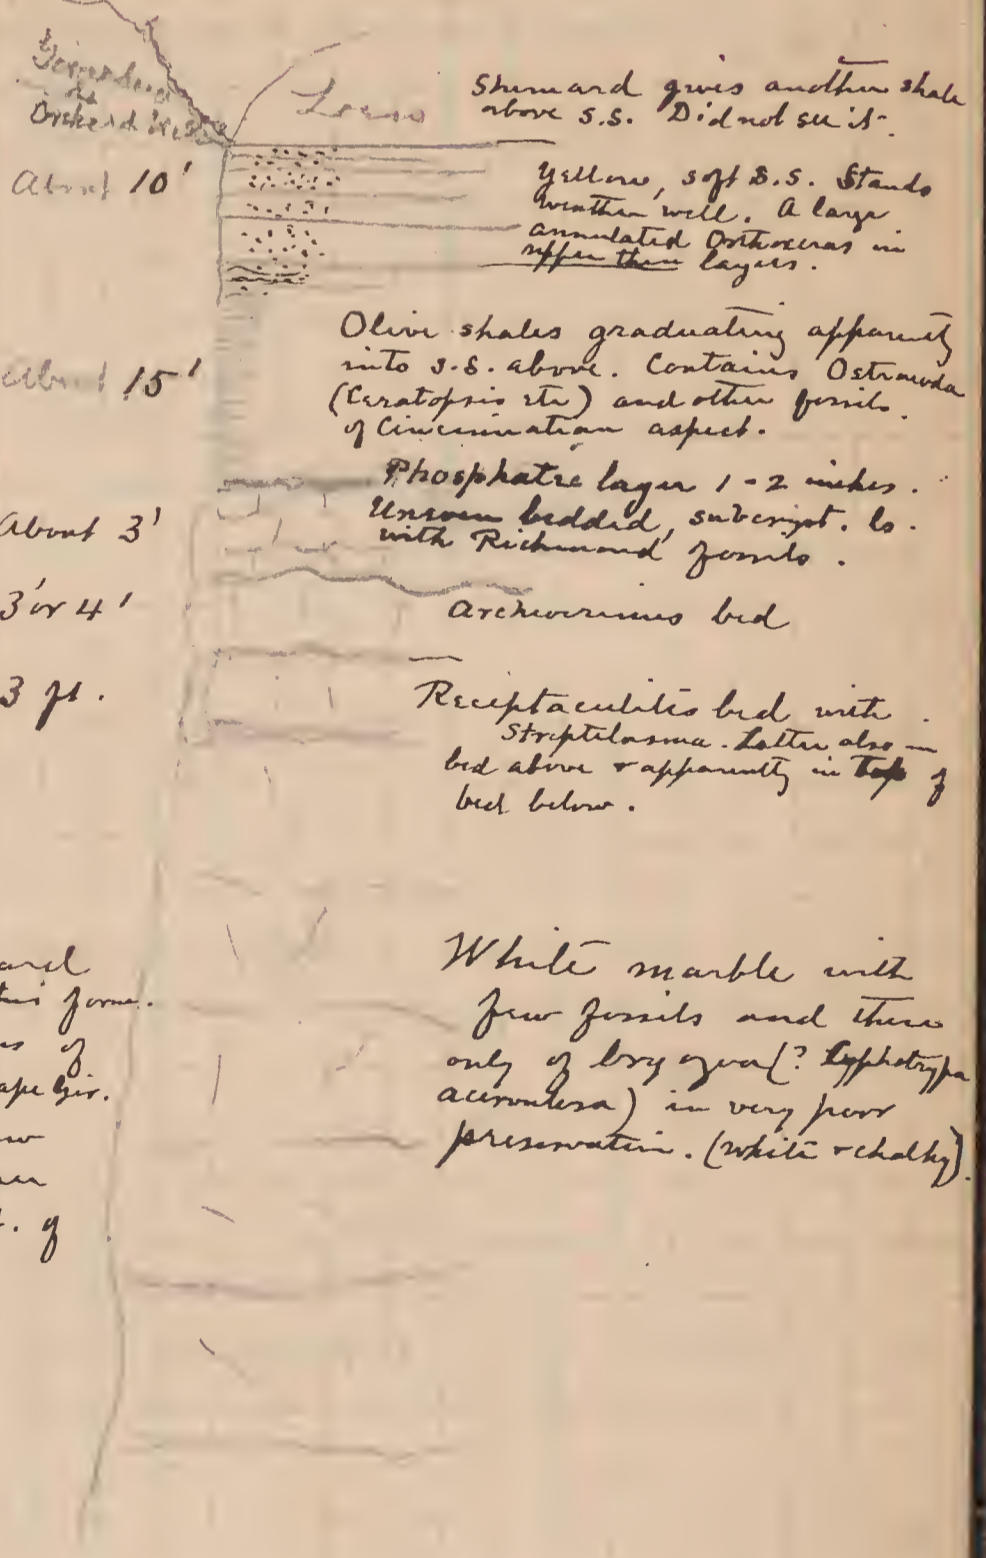 Girardeau
ls
Orchard Creek
Loess
Shumard gives another shale
above S.S. Did not see it.
About 10'
Yellow, soft S.S. Stands
weather well. A large
annulated Orthoceras in
upper thin layers.
Olive shales graduating apparently
into S.S. above. Contains Ostracoda
(Ceratopsis etc) and other fossils.
of Cincinnatian aspect.
About 15'
Phosphatic layer 1-2 inches.
Uneven bedded, subcryst. ls.
with Richmond fossils.
About 3'
3' or 4'
Archeocrinus bed
3 ft.
Receptaculites bed with
Streptelasma. Latter also in
bed above & apparently in top of
bed below.
White marble with
few fossils and these
only of bryozoa (?
) in very poor
preservation. (white & chalky).
form.
of
ape Gir.
. of